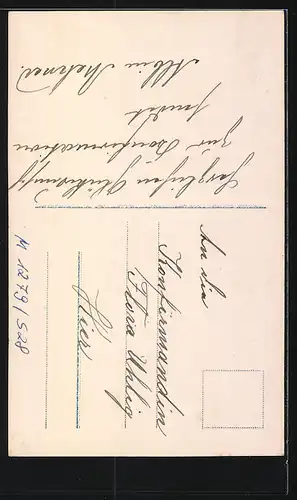 Herzlichen Glückwunsch
zur Konfirmation
sendet
Albin Mehner.
An die
Konfirmandin
Flora Uhlig
Hier
M 1279/528